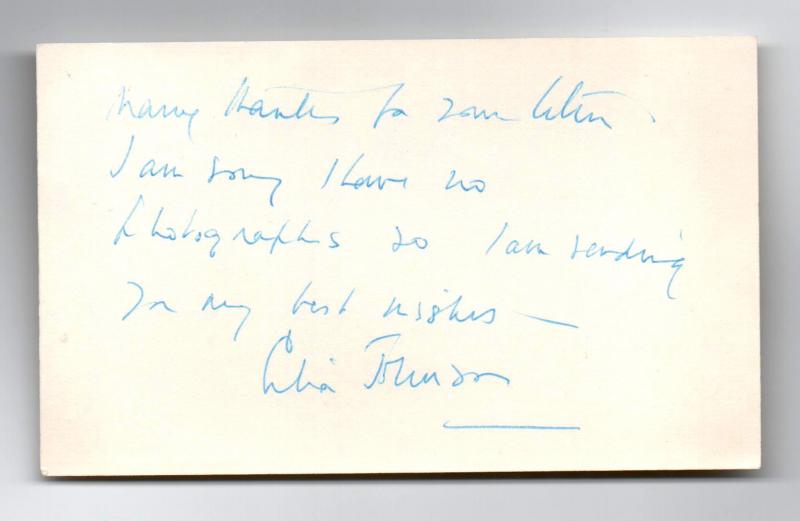 Many thanks for your letter.
I am sorry I have no
photographs so I am sending
you my best wishes —
Celia Johnson